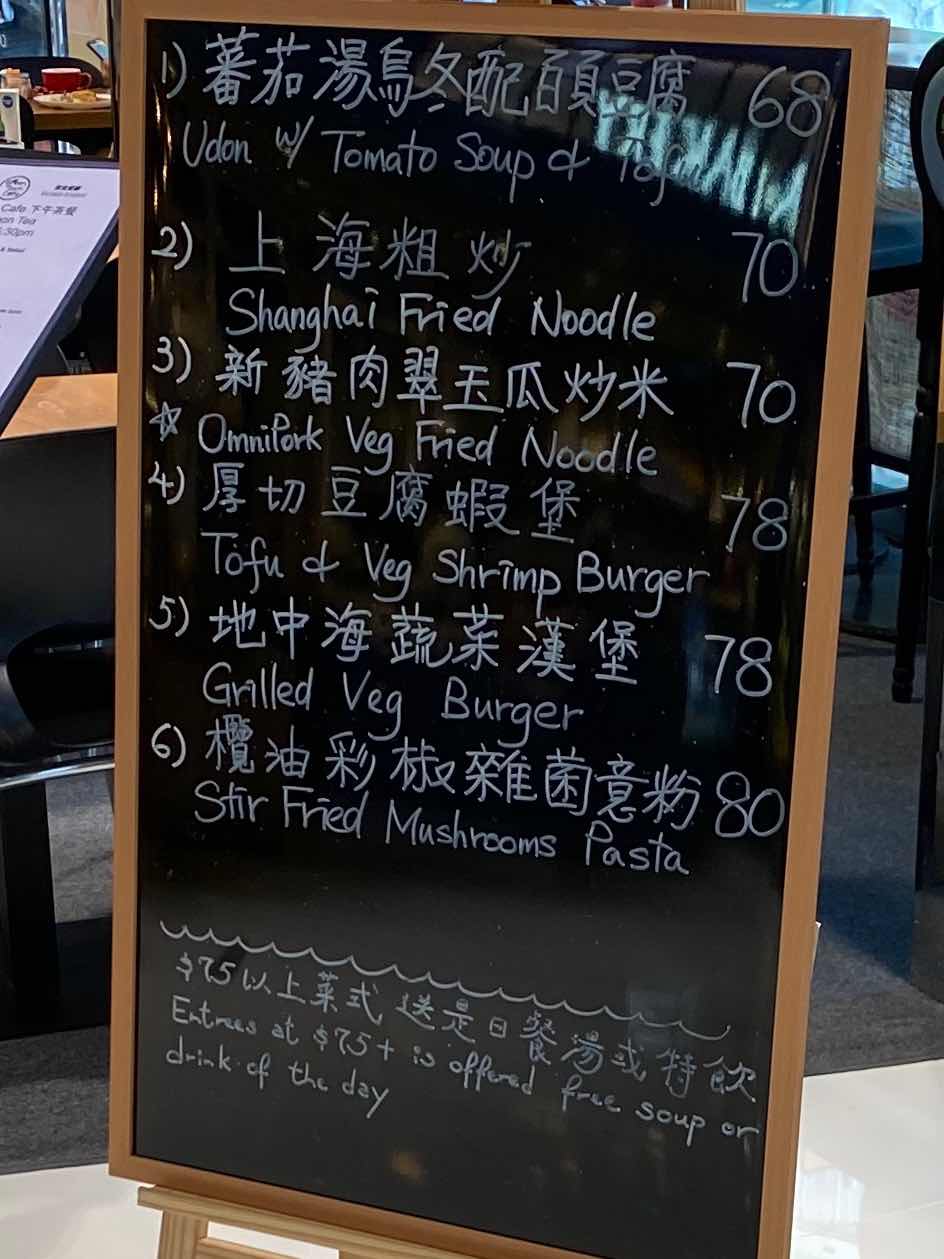 1) 蕃茄湯烏冬配百頁豆腐 68
Udon w/ Tomato Soup & Tofu
2) 上海粗炒 70
Shanghai Fried Noodle
3) 新豬肉翠玉瓜炒米 70
☆ OmniPork Veg Fried Noodle
4) 厚切豆腐蝦堡 78
Tofu & Veg Shrimp Burger
5) 地中海蔬菜漢堡 78
Grilled Veg Burger
6) 欖油彩椒雜菌意粉 80
Stir Fried Mushrooms Pasta
$75以上菜式 送是日餐湯或特飲
Entrees at $75+ is offered free soup or
drink of the day
Cafe 下午茶餐
Tea
:30pm